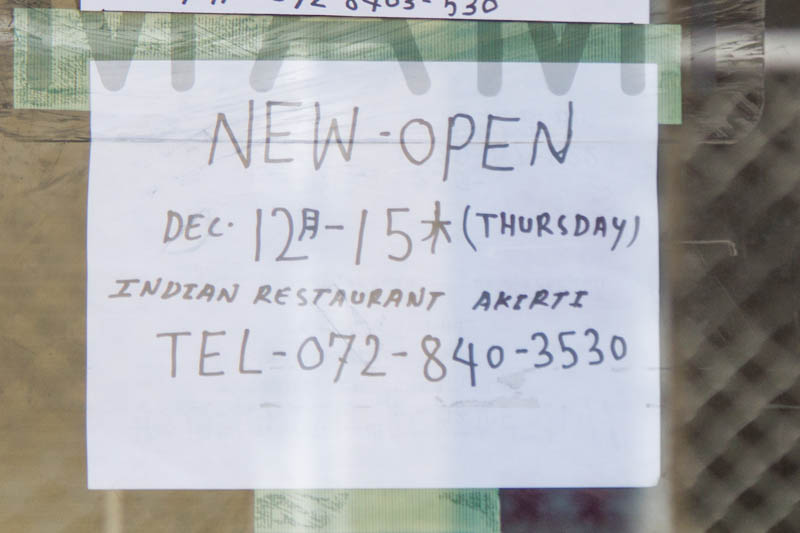 8403-530
NEW-OPEN
DEC. 12月-15木(THURSDAY)
INDIAN RESTAURANT AKIRTI
TEL-072-840-3530